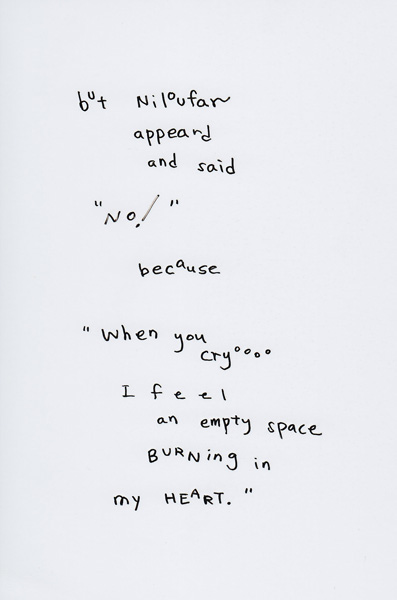 but Niloufar
appeard
and said
"No!"
because
"When you
cry°°°°
I feel
an empty space
BURNing in
my HEART."